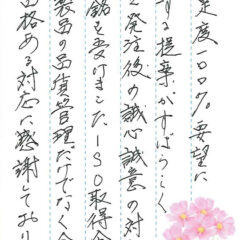 足度一〇〇％。要望に
する提事がすばらしく
発注後の誠心誠意の対
銘を受けました。ISO取得企
製品の品質管理だけでなく企
品格ある対応に感謝しており